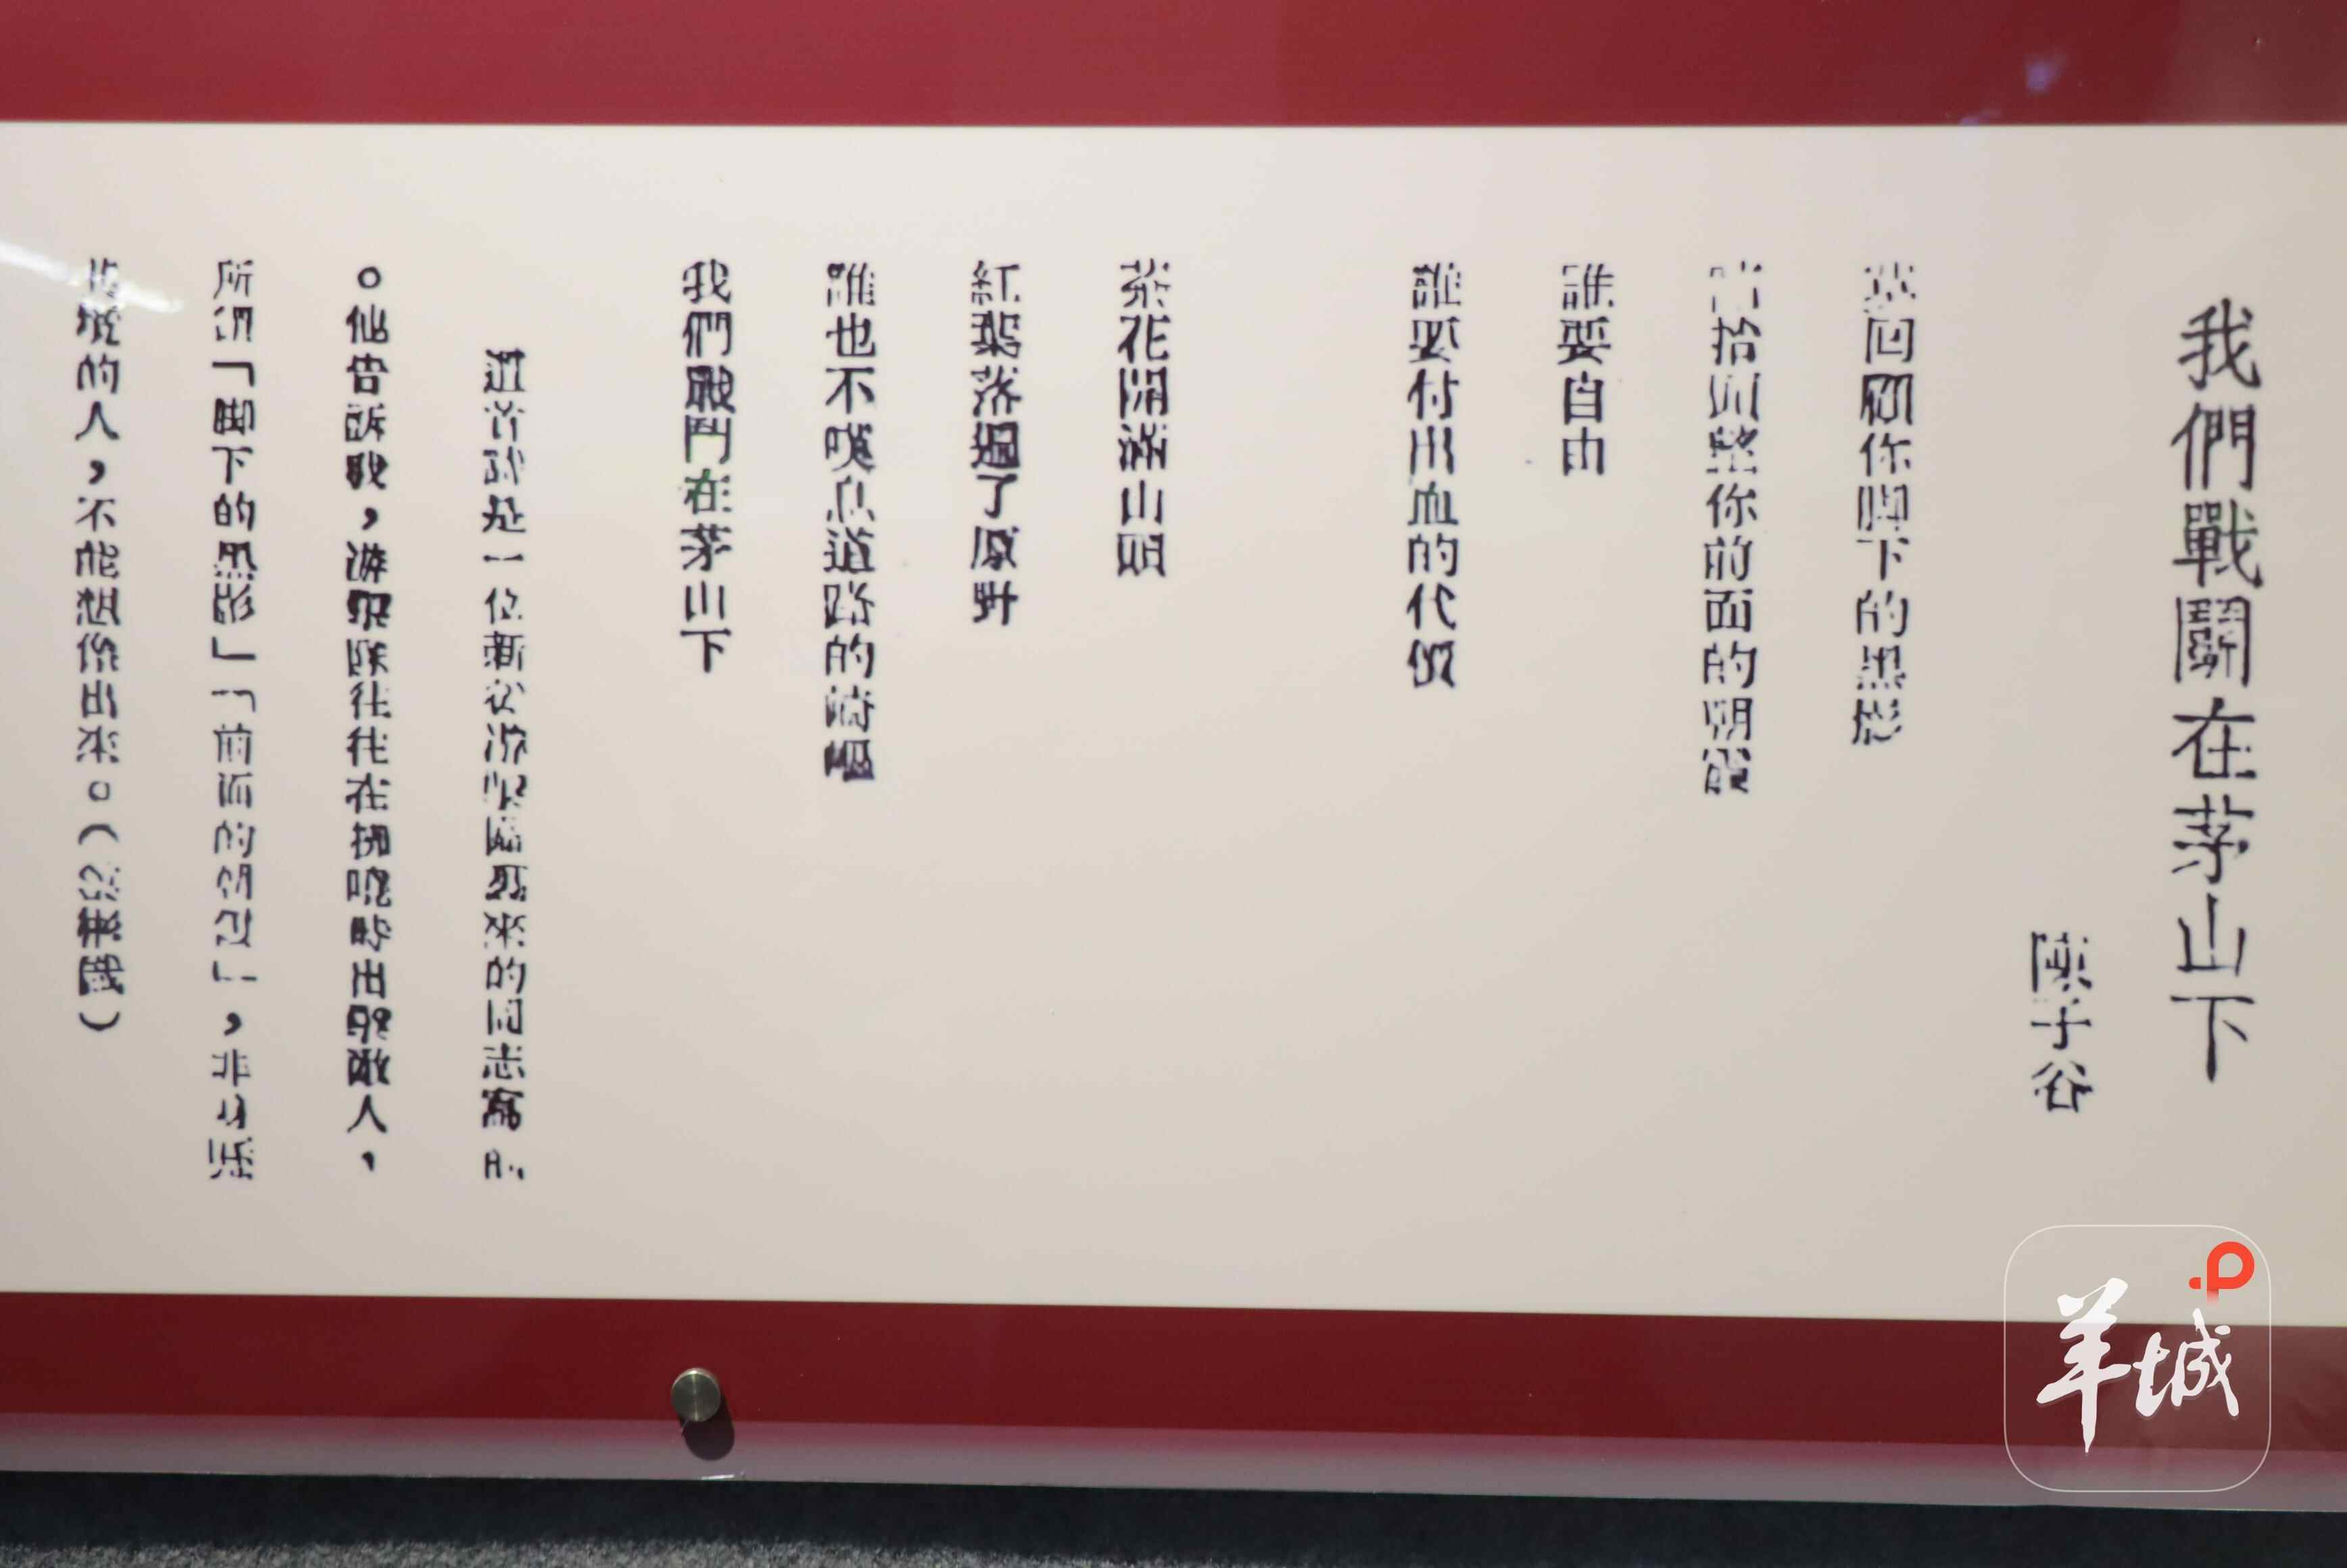 我們戰鬭在茅山下
陳子谷
回顧你脚下的黑影
抬頭望你前面的朝霞
誰要自由
誰要付出血的代價
茶花開滿山頭
紅葉落遍了原野
誰也不嘆息道路的崎嶇
我們戰鬥在茅山下
這首詩是一位新從游擊區歸來的同志寫的
。他告訴我，游擊隊往往在拂曉時出擊敵人，
所謂「脚下的黑影」「前面的朝霞」，非身歷
其境的人，不能想像出來。
羊城